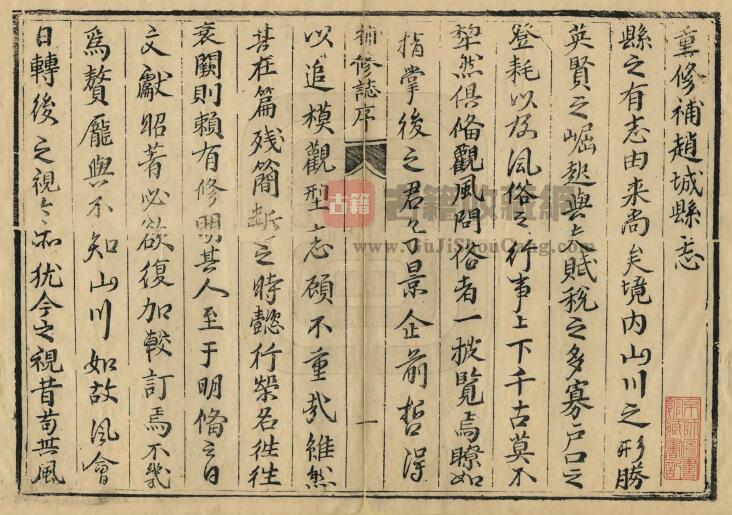 重修補趙城縣志
縣之有志由來尚矣境内山川之形勝
英賢之崛起與夫賦稅之多寡戶口之
登耗以及風俗之行事上下千古莫不
犂然俱備觀風問俗者一披覽焉瞭如
指掌後之君子景企前哲得
補修誌序
一
以追模觀型志顧不重哉雖然
苦在篇殘簡斷之時懿行榮名徃徃
衰闕則賴有修明其人至于明備之日
文獻昭著必欲復加較訂焉不幾
爲贅龐與不知山川如故風會
日轉後之視今亦猶今之視昔苟其風
古籍
古籍收藏網
www.GuJiShouCang.com